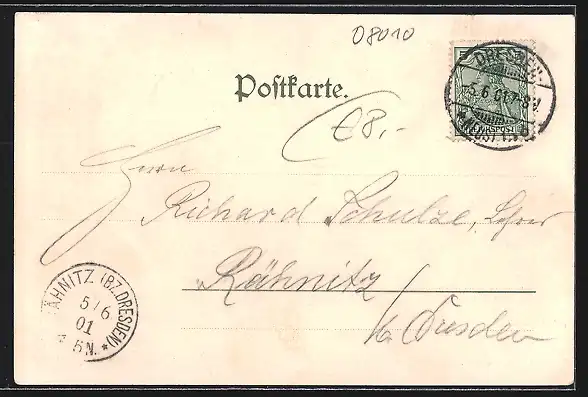 08010
Postkarte.
€8,-
DRESDEN
5.6.01.7-8V.
REICHSPOST
Herrn
Richard Schulze,
Rähnitz
b/ Dresden
RÄHNITZ (BZ. DRESDEN)
5/6
01
5N.